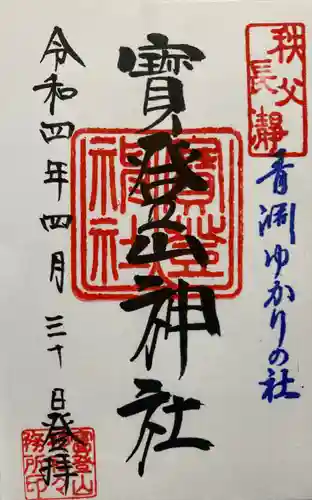 秩父
長瀞
青渕ゆかりの社
寳登山神社
寳登山
神社
令和四年四月三十日登拝
寳登山
神社
務所印